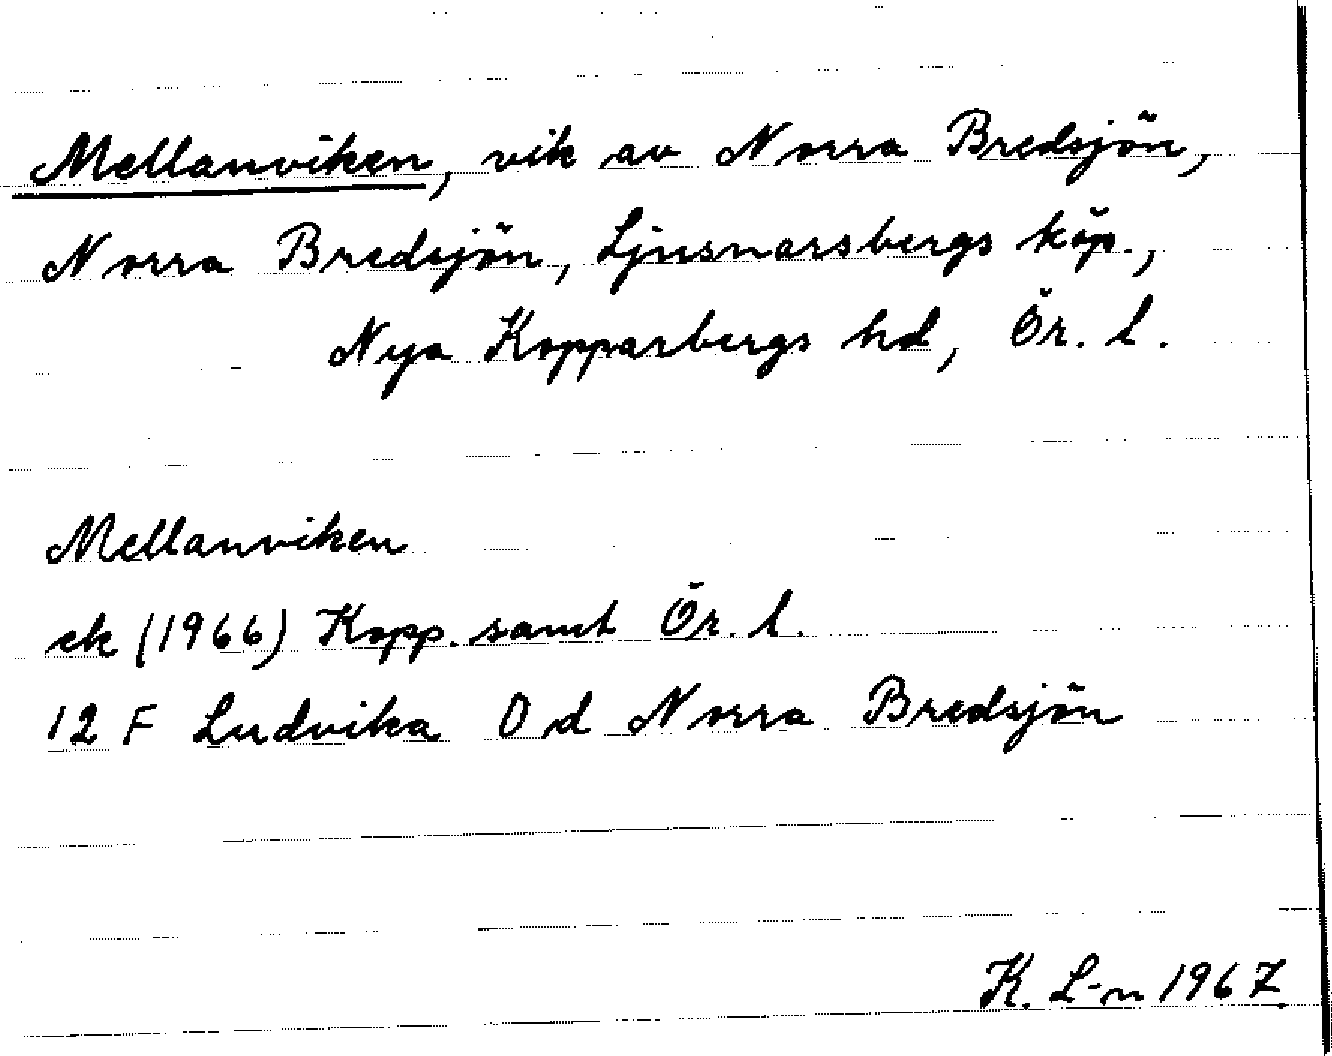 Mellanviken, vik av Norra Bredsjön,
Norra Bredsjön, Ljusnarsbergs köp.,
Nya Kopparbergs hd, Ör. l.
Mellanviken
ek (1966) Kopp. samt Ör. l.
12 F Ludvika 0 d Norra Bredsjön
K. L-n 1967